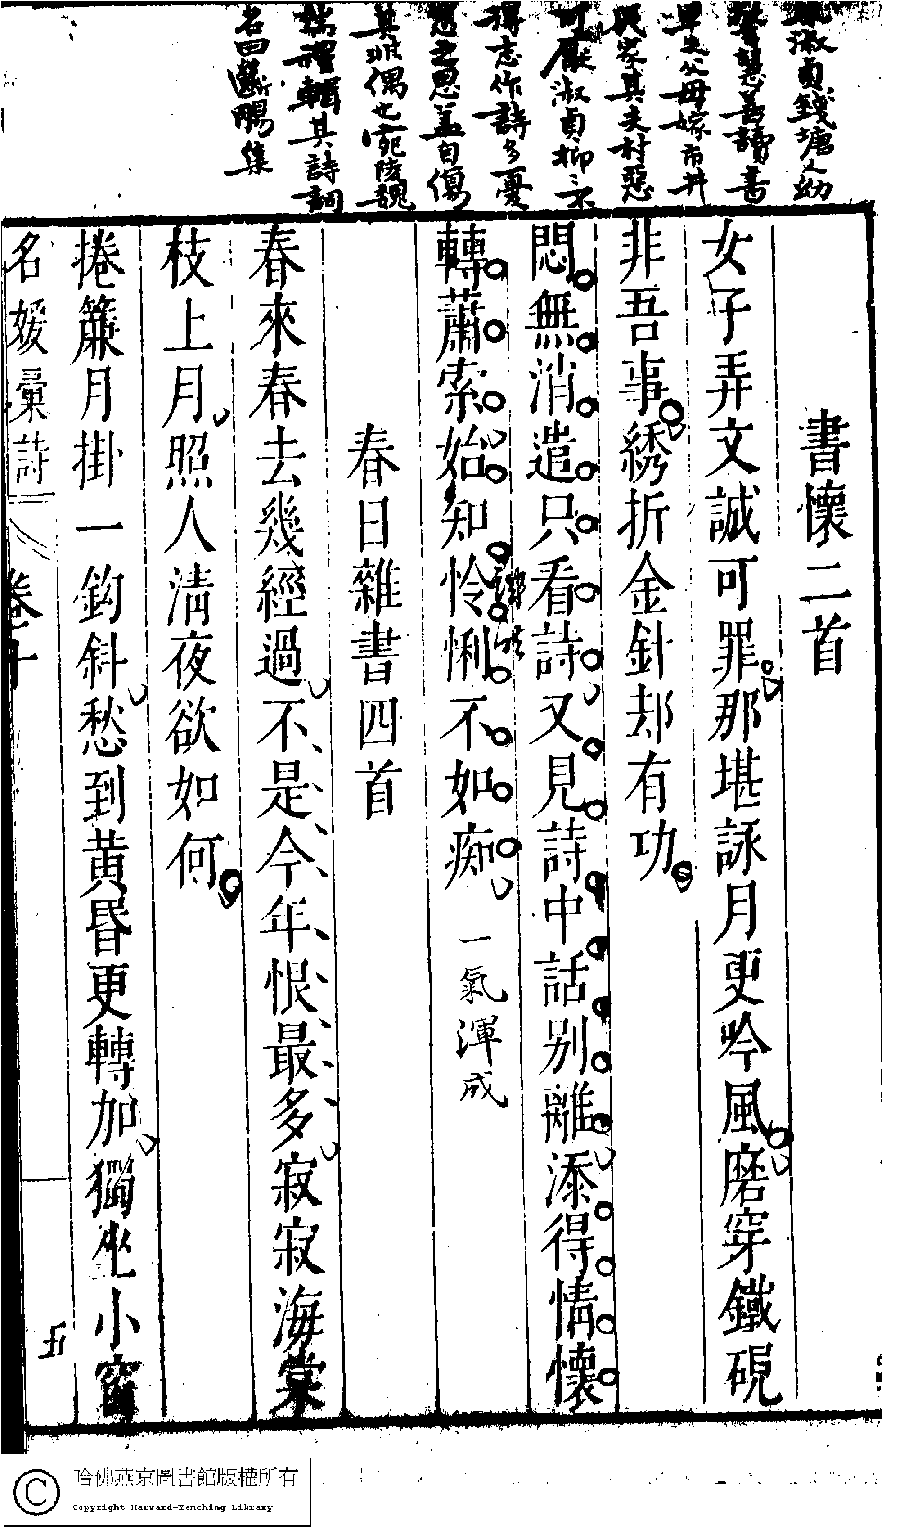 朱淑真錢塘人幼
警慧善讀書
早失父母嫁市井
民家其夫村惡
可厭淑貞抑〻不
得志作詩多憂
怨之思蓋自傷
其非偶也宛陵魏
端禮輯其詩詞
名曰斷腸集
書懷二首
女子弄文誠可罪那堪詠月更吟風磨穿鐵硯
非吾事綉折金針却有功
悶無消遣只看詩又見詩中話別離添得情懷
轉蕭索始知怜悧不如痴
一氣渾成
春日雜書四首
春來春去幾經過不是今年恨最多寂寂海棠
枝上月照人清夜欲如何
捲簾月掛一鈎斜愁到黃昏更轉加獨坐小窗
名媛彙詩
卷十
五
哈佛燕京圖書館版權所有
Copyright Harvard-Yenching Library